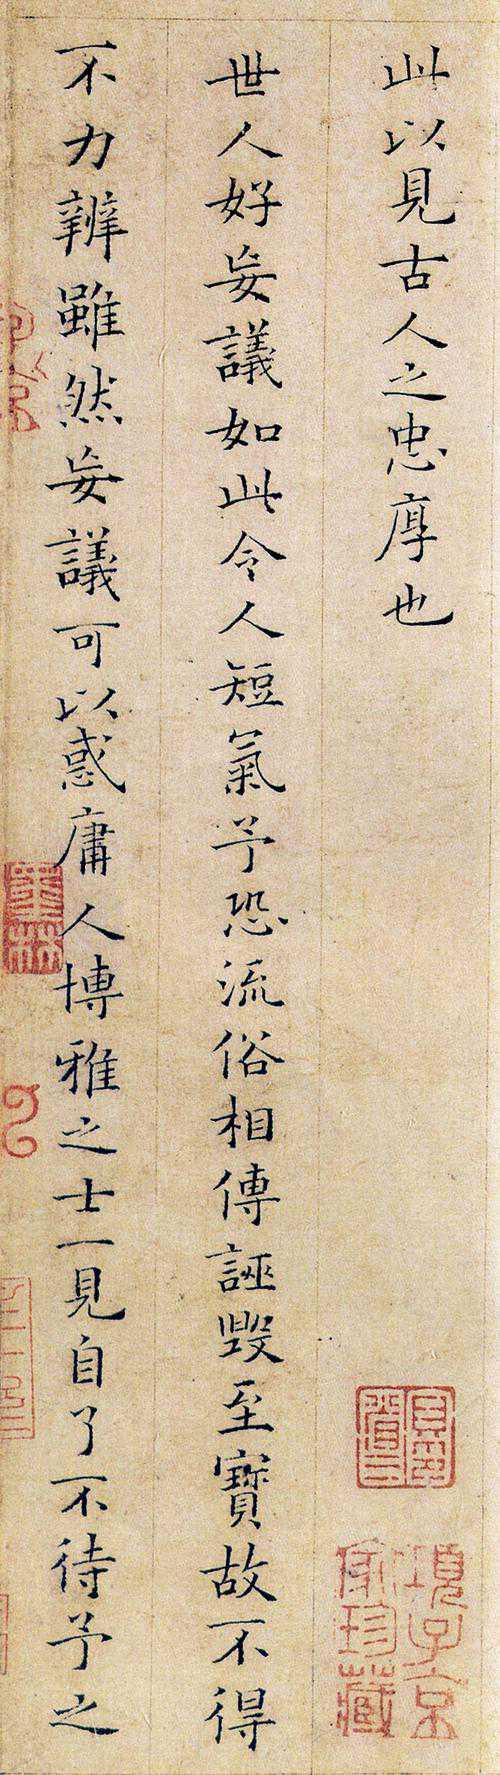 此以見古人之忠厚也
世人好妄議如此令人短氣予恐流俗相傳誣毀至寶故不得
不力辨雖然妄議可以惑庸人博雅之士一見自了不待予之
項子京家珍藏